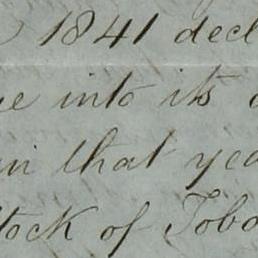 1841 decl
into its
in that yea
tock of Toba